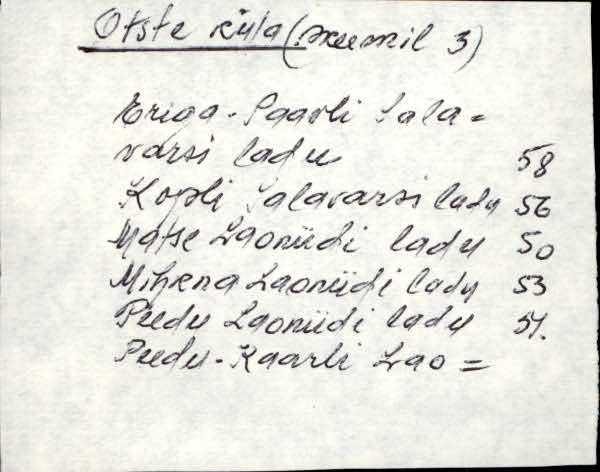 Otste küla (
Eriga-Paavli Sala=
varsi ladu 58
Kopli Salavarsi ladu 56
Matse Laoniidi ladu 50
Mihkena Laoniidi ladu 53
Peedu Laoniidi ladu 51.
Peedu-Kaarli Lao=